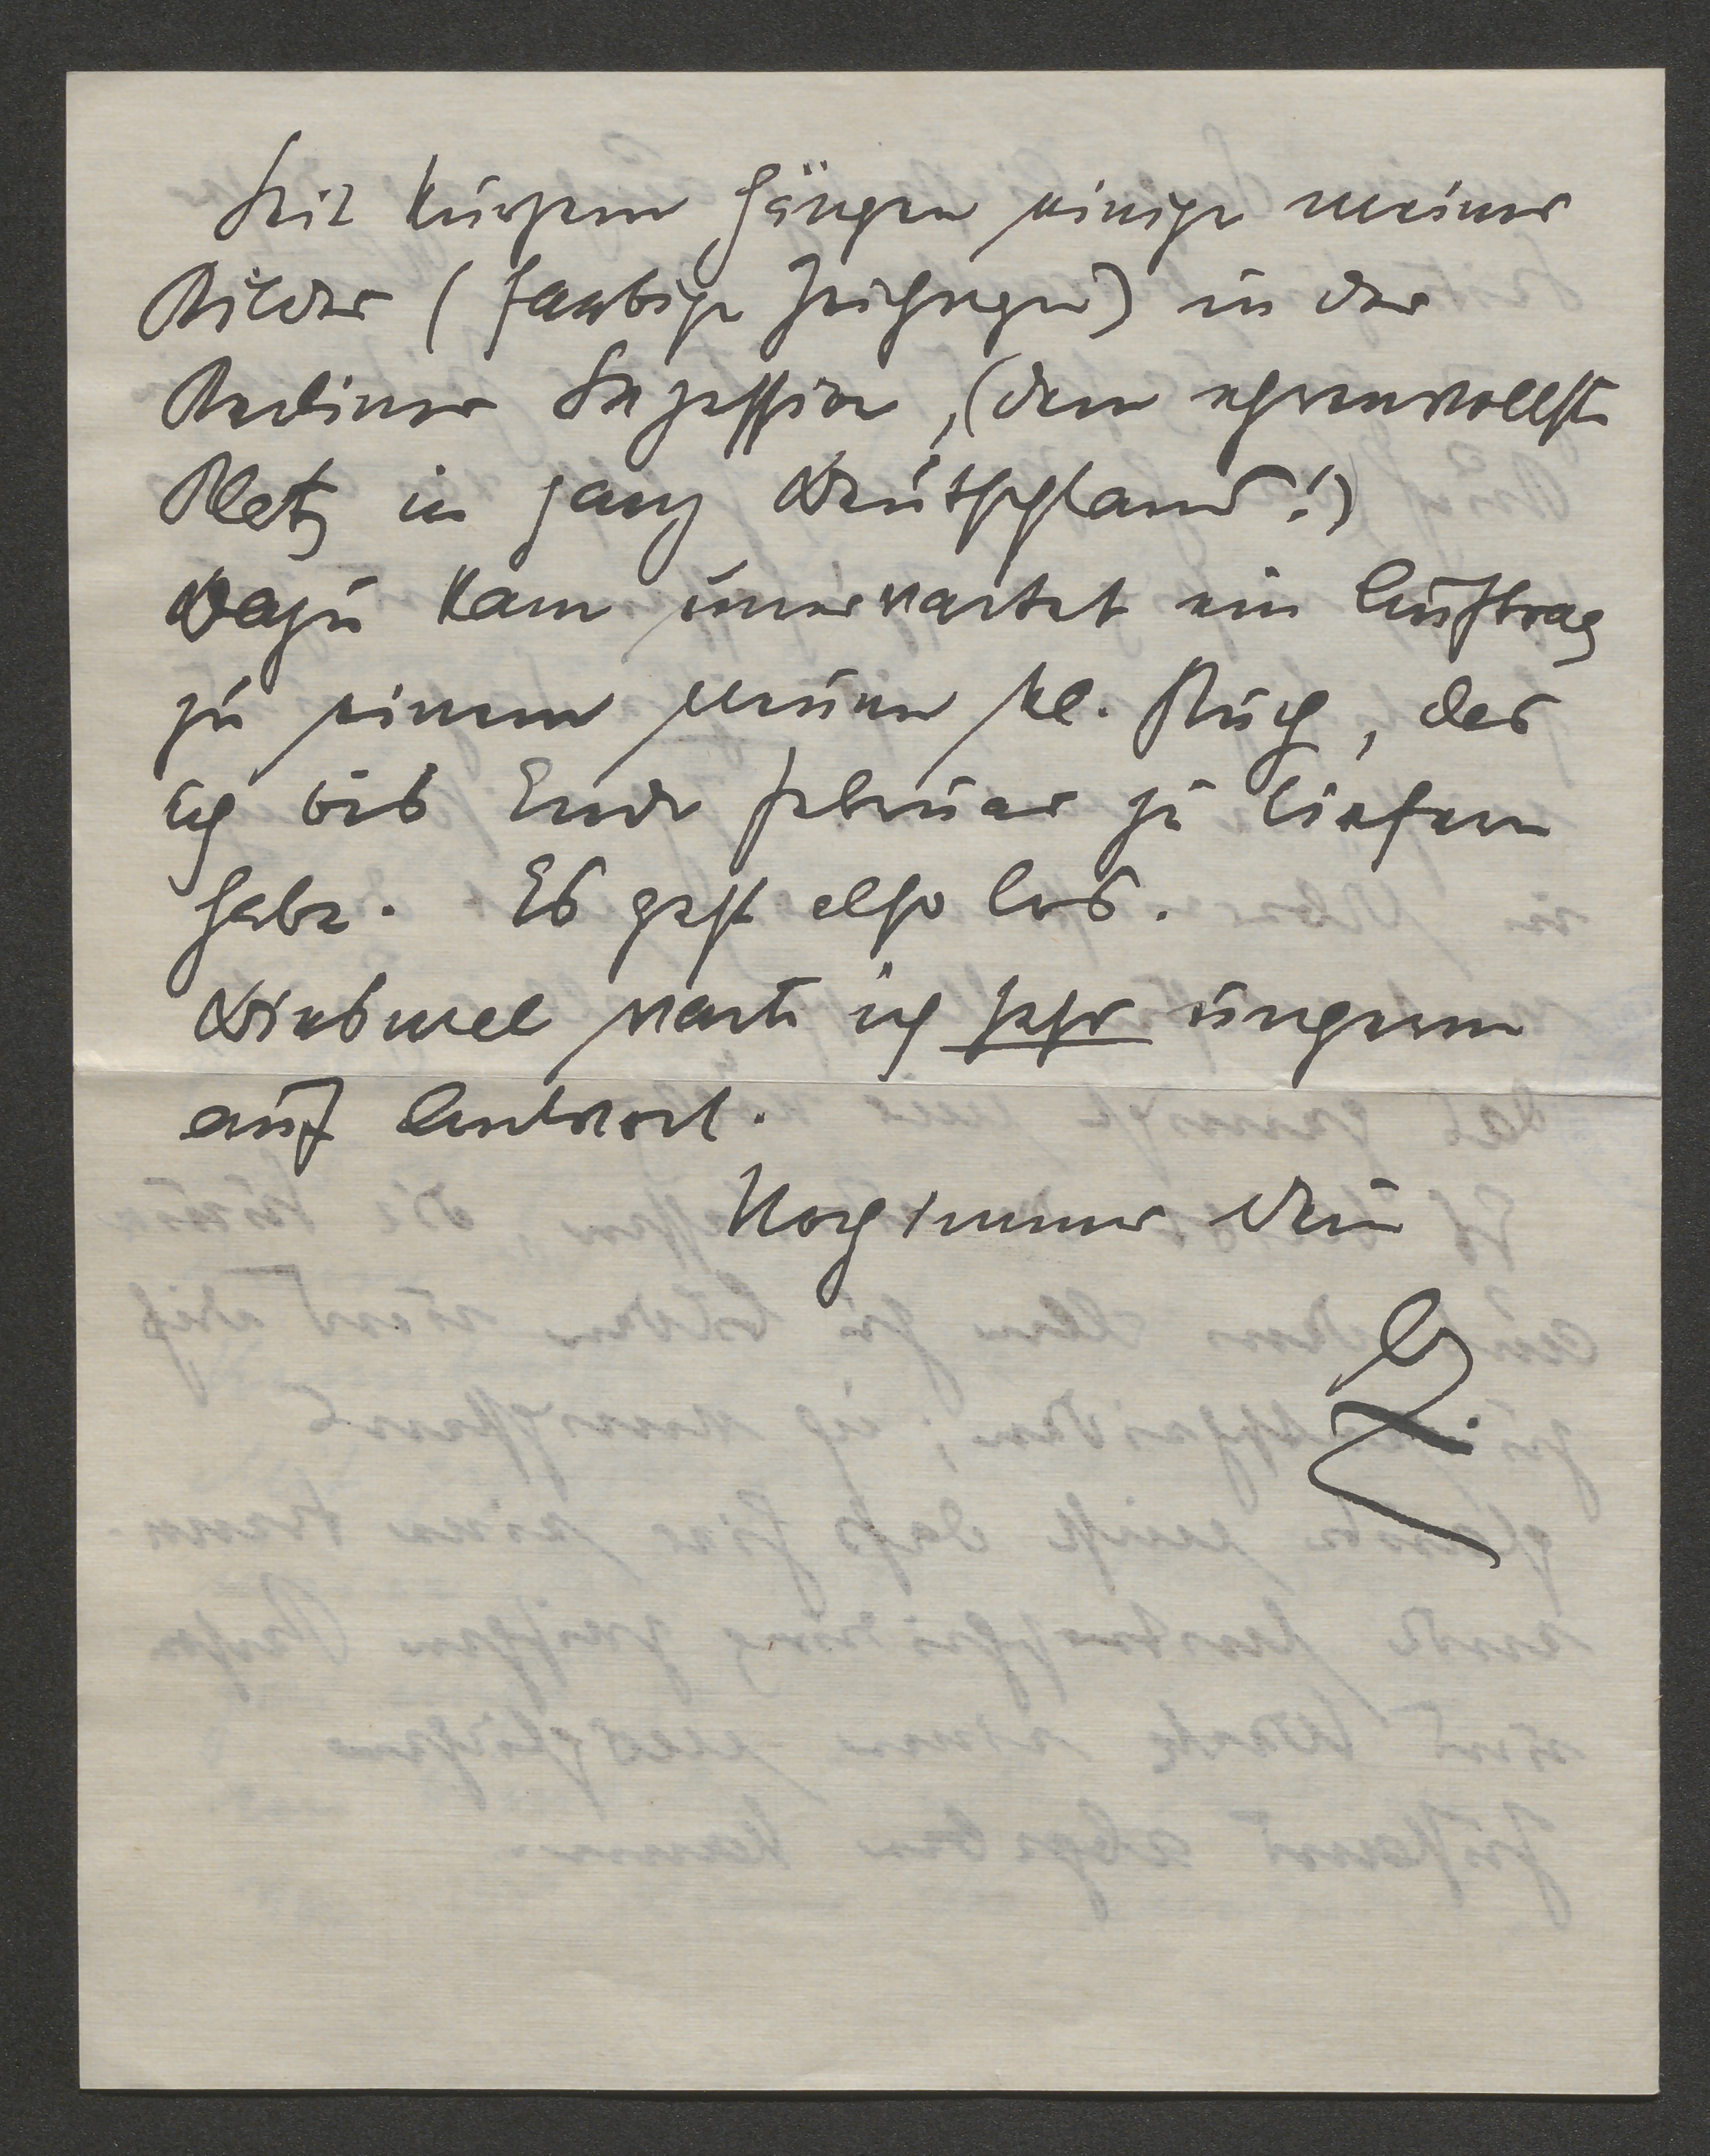 Seit kurzem hängen einige meiner
Bilder (farbige Zeichngen) in der
Berliner Sezession, (dem ehrenvollste
Platz in ganz Deutschland!)
Dazu kam unerwartet ein Auftrag
zu einem neuen kl. Buch, das
ich bis Ende Februar zu liefern
habe. Es geht also los.
Diesmal warte ich sehr ungern
auf Antwort.
Noch immer dein